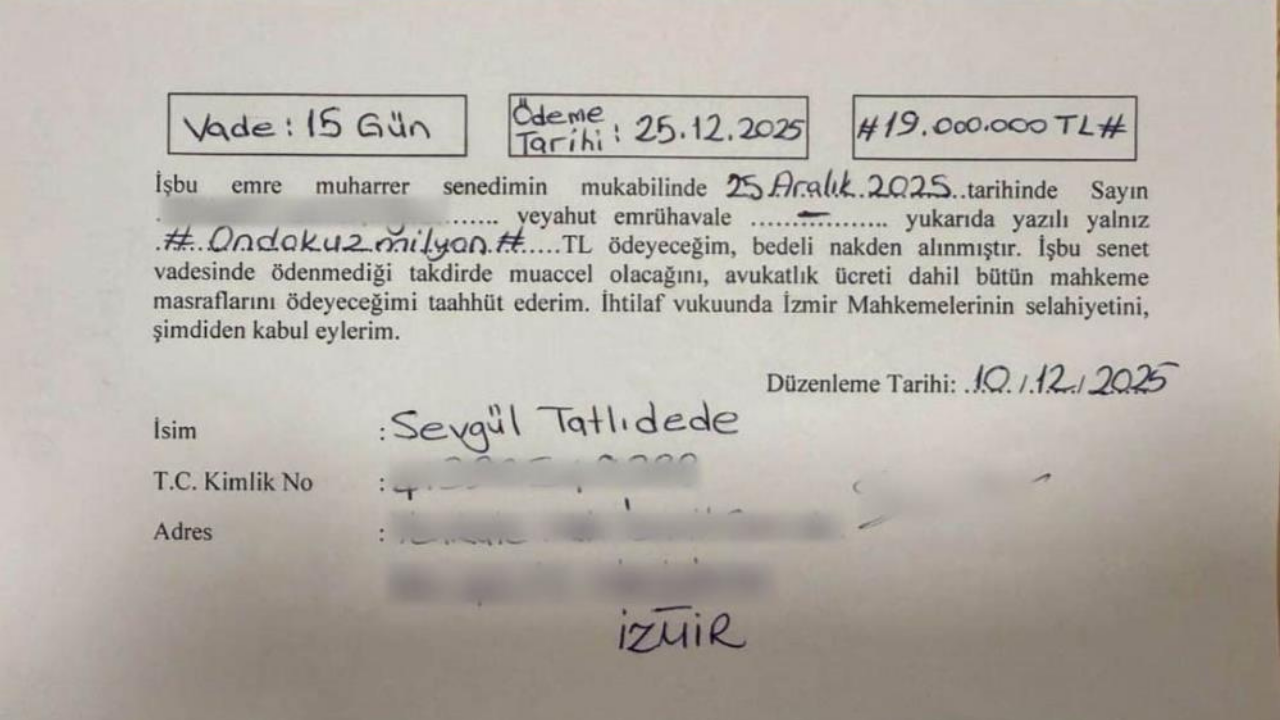 Vade: 15 Gün
Ödeme Tarihi: 25.12.2025
#19.000.000 TL#
İşbu emre muharrer senedimin mukabilinde 25 Aralık 2025..tarihinde Sayın
....... yeyahut emrühavale ................. yukarıda yazılı yalnız
.#..Ondokuzmilyon.#.....TL ödeyeceğim, bedeli nakden alınmıştır. İşbu senet
vadesinde ödenmediği takdirde muaccel olacağını, avukatlık ücreti dahil bütün mahkeme
masraflarını ödeyeceğimi taahhüt ederim. İhtilaf vukuunda İzmir Mahkemelerinin selahiyetini,
şimdiden kabul eylerim.
Düzenleme Tarihi: .10./.12./.2025
İsim : Sevgül Tatlıdede
T.C. Kimlik No :
Adres :
İZMİR